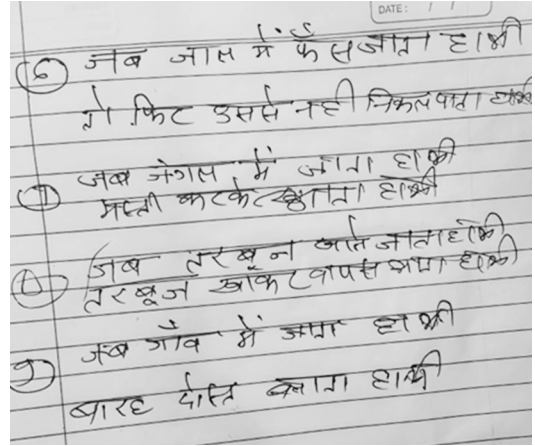 DATE: / /
(6) जब जाल में फँसजाता हाथी
तो फिर उससे नही निकलपाता हाथी
(7) जब जंगल में जाता हाथी
मस्ती करके खाता हाथी
(8) जब तरबूज खाने जाताहाथी
तरबूज खाकर वापस आता हाथी
9) जब गाँव में जाता हाथी
बारह दोस्त बनाता हाथी